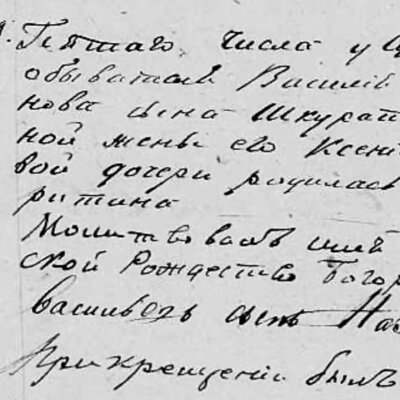 Пятаго числа у
обывателя Василія
нова сына Шкурат
ной жены его Ксені
вой дочери родилась
ритина
Молитвовалъ
ской Рождество Богор
василевъ сынъ
При крещеніи былъ